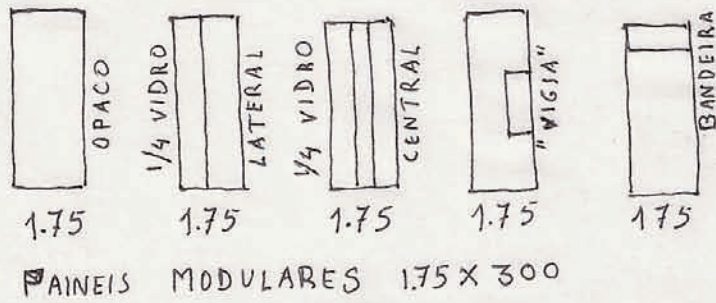 OPACO
1/4 VIDRO
LATERAL
1/4 VIDRO
CENTRAL
"VIGIA"
BANDEIRA
1.75
1.75
1.75
1.75
175
PAINEIS MODULARES 1.75 X 300